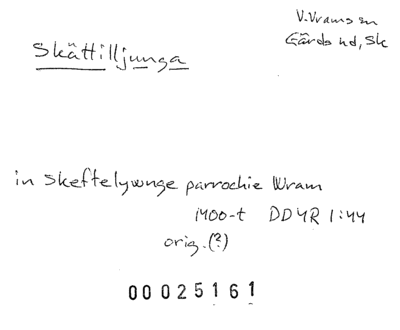 V. Vrams sn
Gärds hd, Sk
Skättilljunga
in Skeftelywnge parrochie Wram
1400-t DD4R 1:44
orig.(?)
00025161